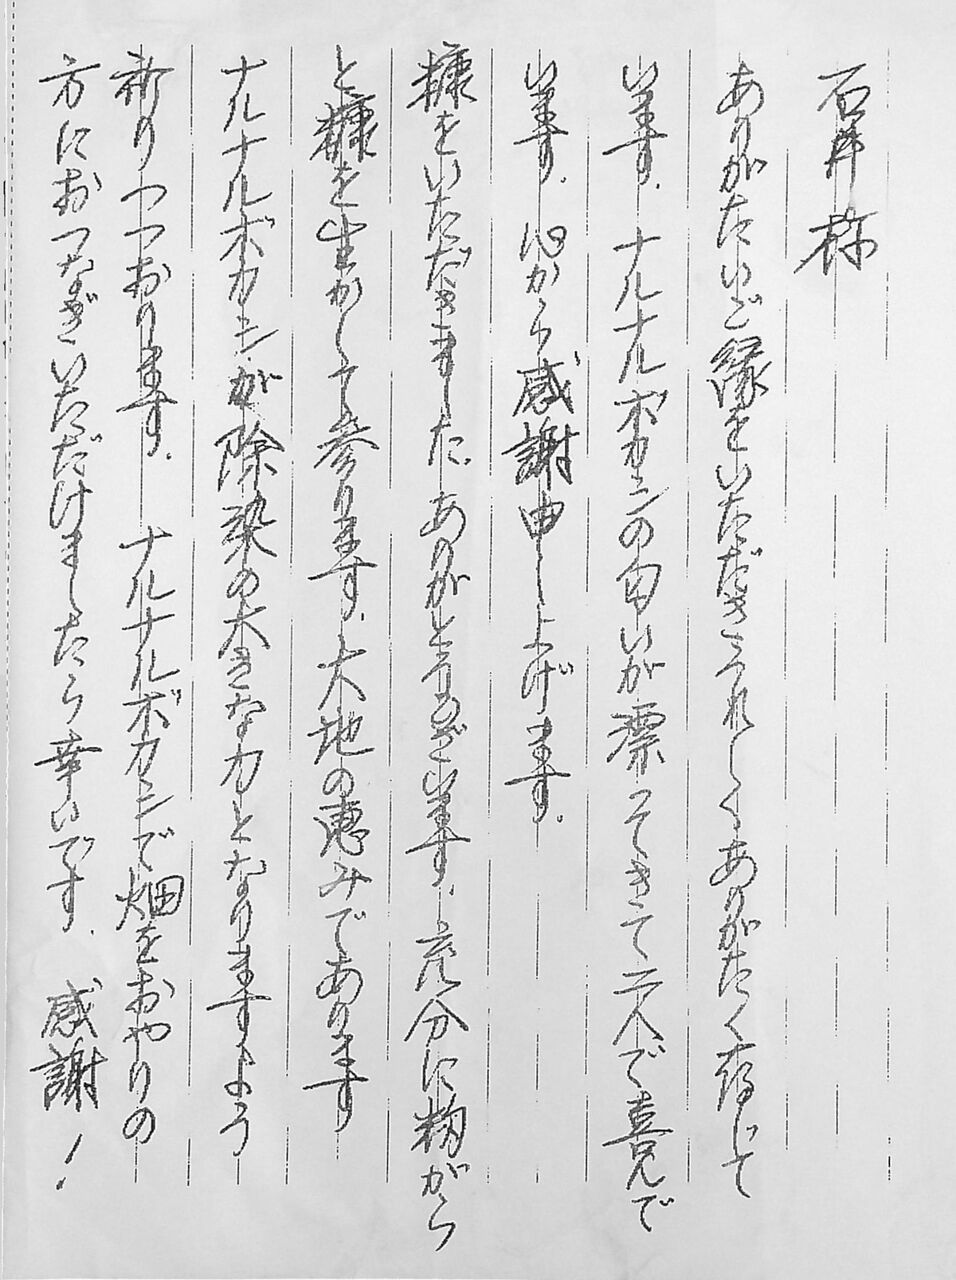 石井様
ありがたいご縁をいただきうれしくありがたく存じて
います。ナルナルボカシの匂いが漂ってきて二人で喜んで
います。心から感謝申し上げます。
糠をいただきました。ありがとうございます。充分に籾がら
と糠を生かして参ります。大地の恵みであります
ナルナルボカシが除染の大きな力となりますよう
祈りつつおります。ナルナルボカシで畑をおやりの
方におつなぎいただけましたら幸いです。感謝!